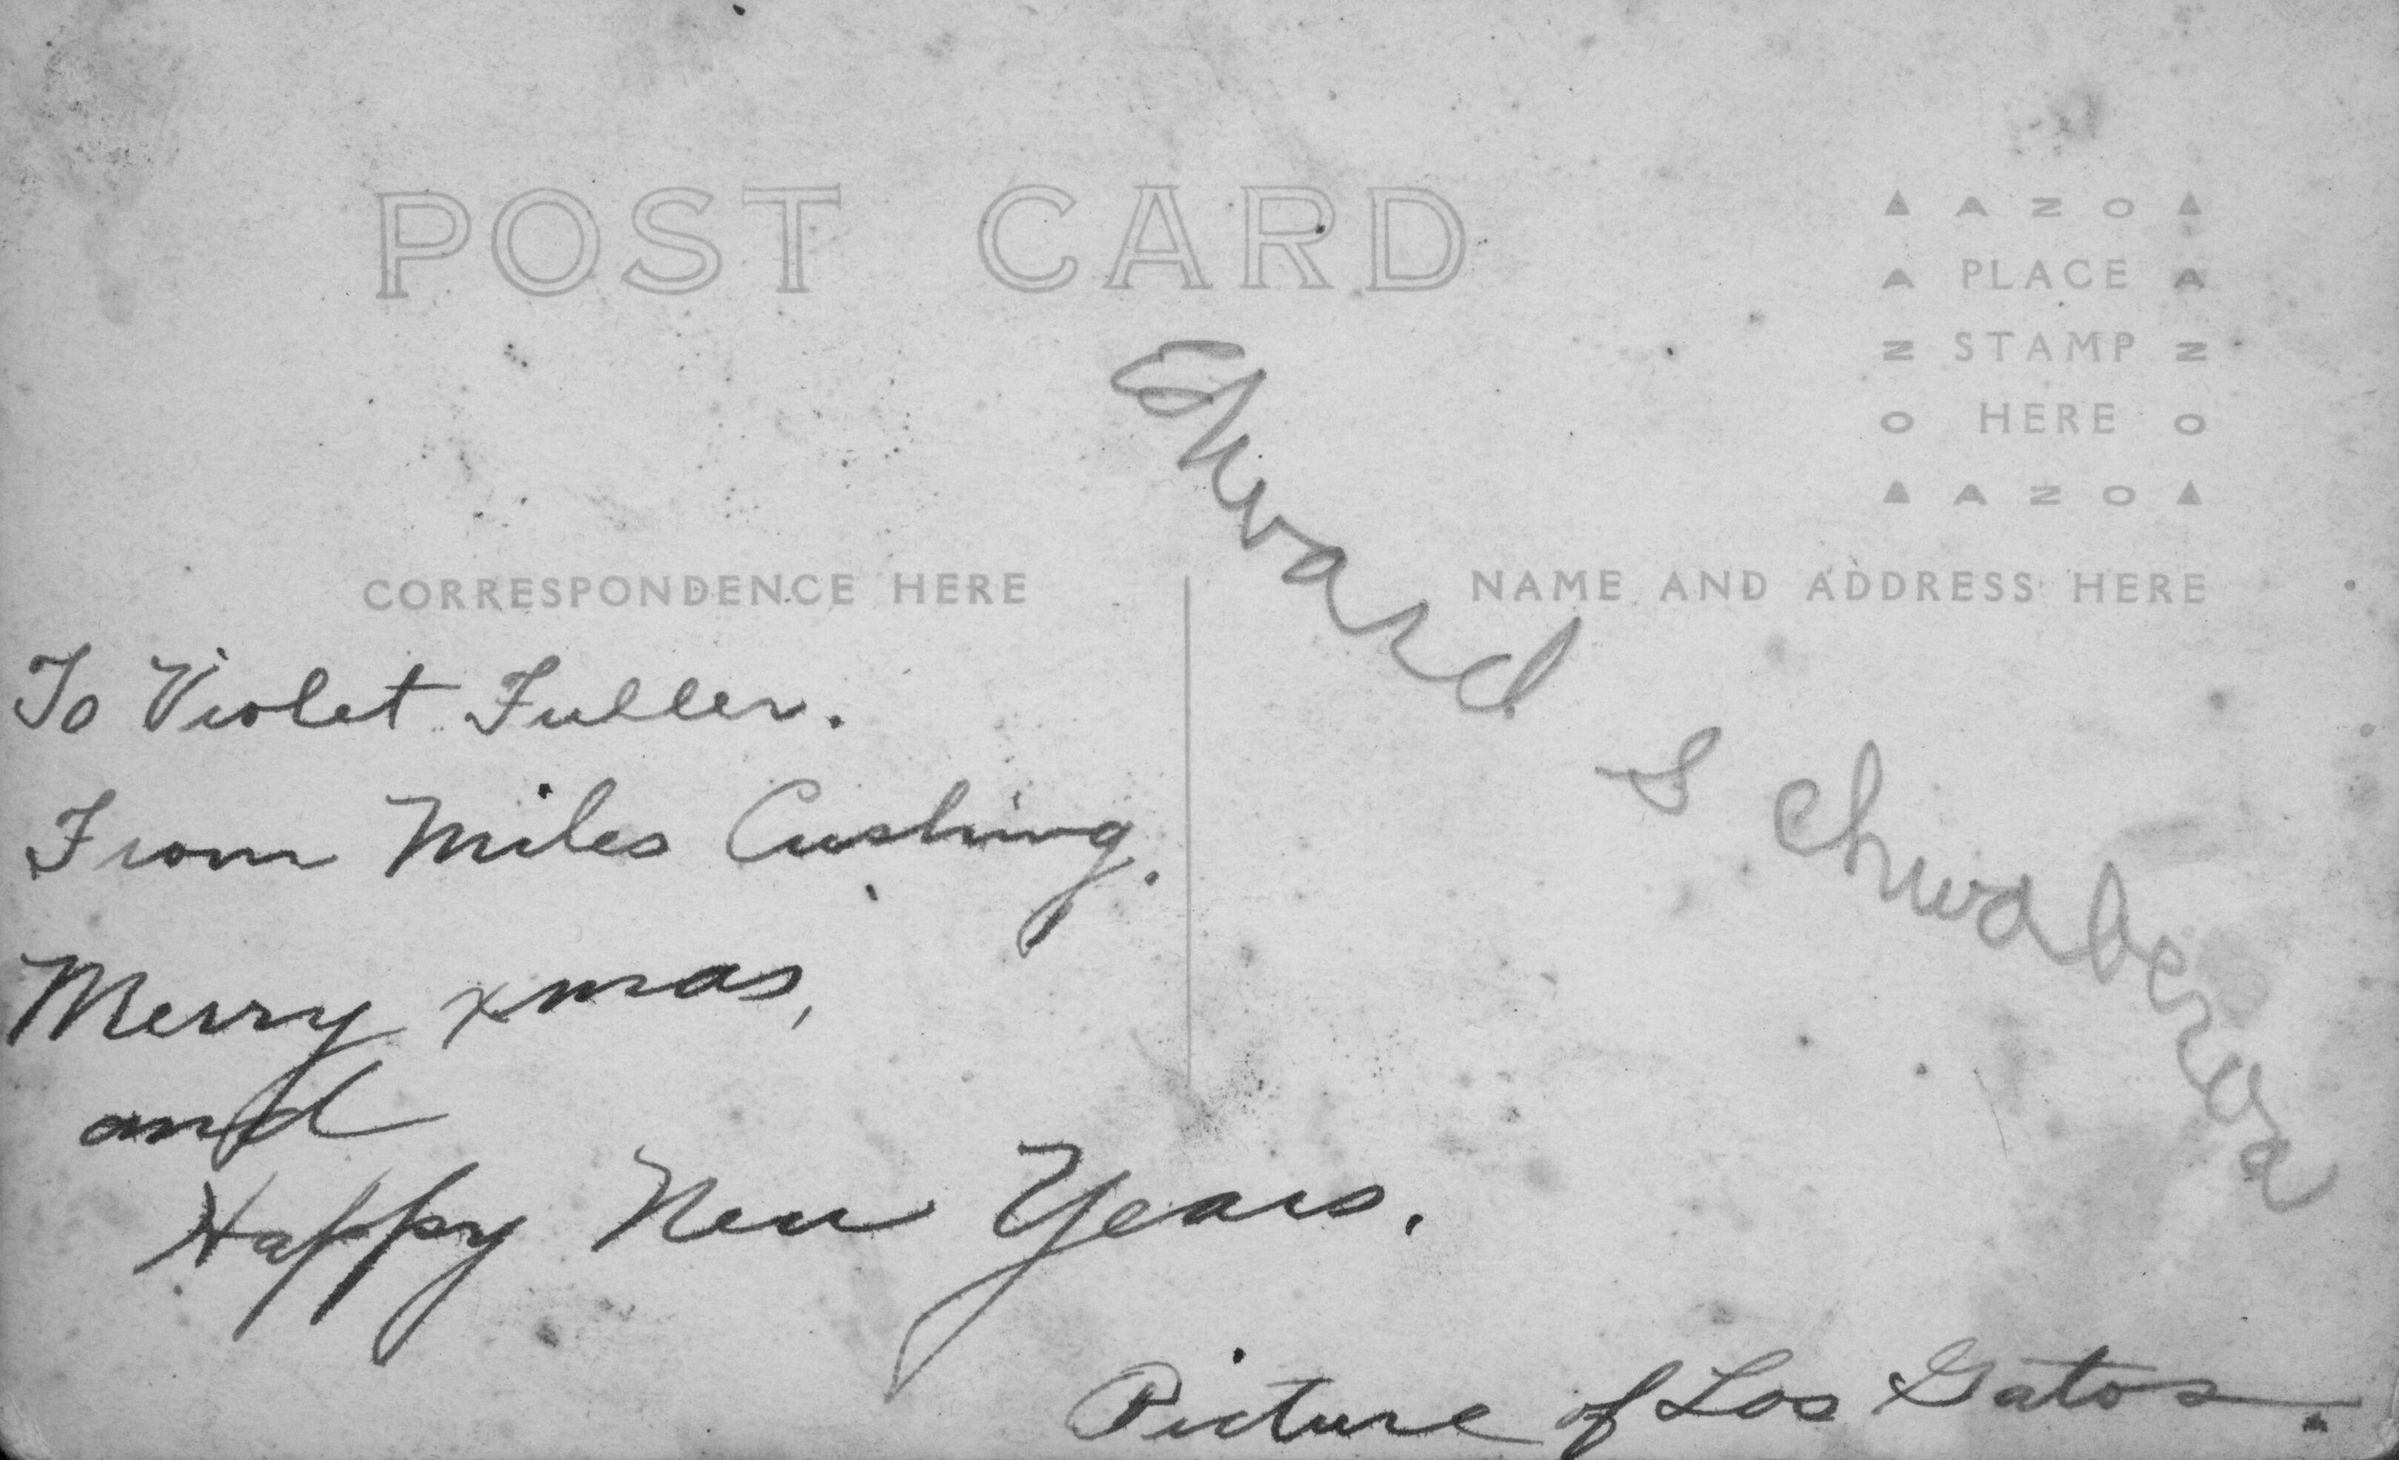 POST CARD
▲ A Z O ▲
A PLACE A
Z STAMP Z
O HERE O
▲ A Z O ▲
CORRESPONDENCE HERE
NAME AND ADDRESS HERE
To Violet Fuller.
From Miles Cushing.
Merry xmas,
and
Happy New Years.
Edward
Picture of Los Gatos.